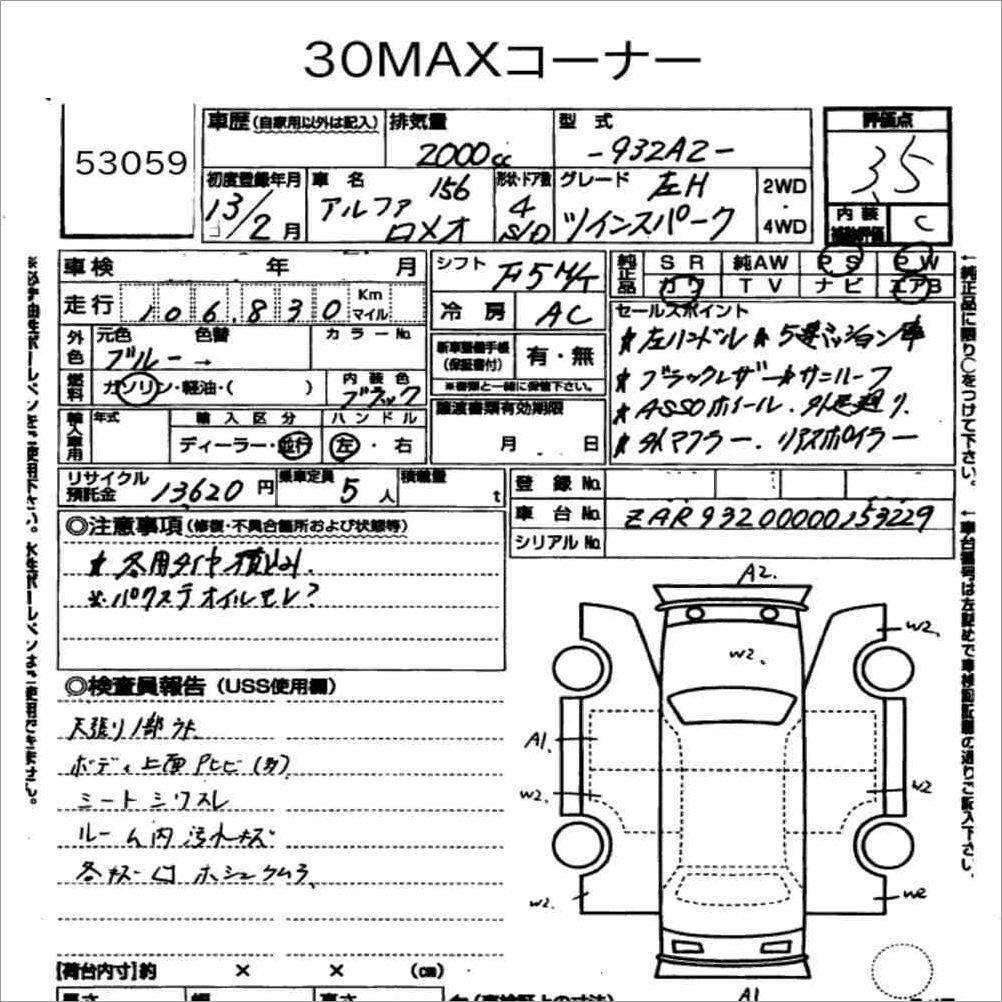 30MAXコーナー
53059
車歴(自家用以外は記入)
排気量
2000cc
型 式
-932A2-
評価点
3.5
初度登録年月
13/2月
車 名
156
アルファ
ロメオ
形状・ドア数
4
S/D
グレード
左H
ツインスパーク
2WD
・
4WD
内 装
補助評価
C
車検 年 月
シフト F5MT
純正品
SR 純AW PS PW
カワ TV ナビ エアB
走行 106,830 Km マイル
冷 房 AC
セールスポイント
★左ハンドル ★5速ミッション車
★ブラックレザー★サンルーフ
★ASSOホイール.外足廻り.
★外マフラー.リアスポイラー
外色
元色 色替
ブルー →
カラーNo.
新車整備手帳
(保証書付)
有・無
※書類と一緒に保管下さい。
燃料
ガソリン・軽油・( )
内 装 色
ブラック
譲渡書類有効期限
月 日
輸入車用
年式
輸 入 区 分
ディーラー・並行
ハ ン ド ル
左・右
リサイクル
預託金
13620円
乗車定員
5人
積載量
t
登 録 No.
車 台 No.
ZAR93200000153229
シリアルNo.
◎注意事項(修復・不具合箇所および状態等)
★冬用タイヤ積込み.
※パワステオイルモレ?
◎検査員報告(USS使用欄)
天張り1部ウキ
ボディ上面PヒビI(多)
シートシワスレ
ルーム内汚れキズ
各キズ凹ホシュウムラ
A2.
W2.
W2.
A1.
W2.
W2
W2.
W2
A1
【荷台内寸】約 × × (cm)
長さ 幅 高さ
↑純正品に限り○をつけて下さい。
↑車台番号は左詰めで車検証記載の通りご記入下さい。